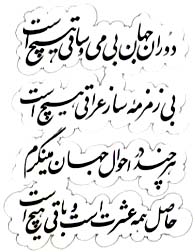 دوران جهان بی می و ساقی هیچ است
بی زمزمهٔ ساز عراقی هیچ است
هر چند در احوال جهان مینگرم
حاصل همه عشرت است و باقی هیچ است